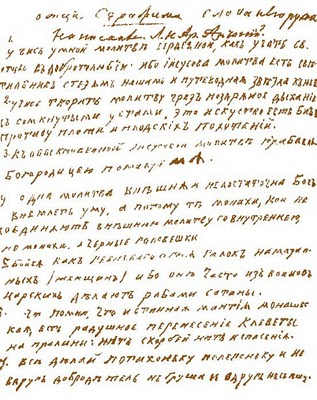 отца Серафима
1.
учись умной молитвѣ сердечной, какъ учатъ св.
отцы въ добротолюбіи: ибо Іисусова молитва есть свѣ
тильникъ стезямъ нашимъ и путеводная звѣзда къ небу
2. учись творить молитву чрезъ ноздряное дыханіе
съ сомкнутыми устами, это искусство есть бичь
противу плоти и плодскихъ похотеній.
3. къ обыкновенной Іисусовой молитвѣ прибавляй
Богородицею помилуй мя.
одна молитва внѣшняя недостаточна Богъ
внемлетъ уму, а потому тѣ монахи, кои не
соединяютъ внѣшнюю молитву со внутреннею,
не монахи. а черные головешки
5 бойся какъ огня галокъ намазан
ныхъ /женщинъ/ ибо они часто изъ воиновъ
царскихъ дѣлаютъ рабами сатаны.
помни, что истинная мантія монашес
кая, есть радушное перенесеніе клеветы
и напраслины: нѣтъ скорбей нѣтъ и спасенія.
все дѣлай потихоньку полегоньку и не
вдругъ добродѣтель не груша вдругъ не